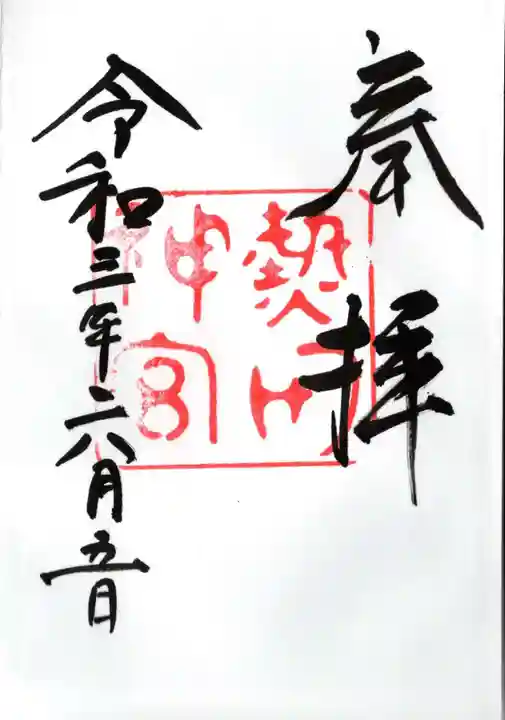 奉拝
熱田
神宮
令和三年六月五日